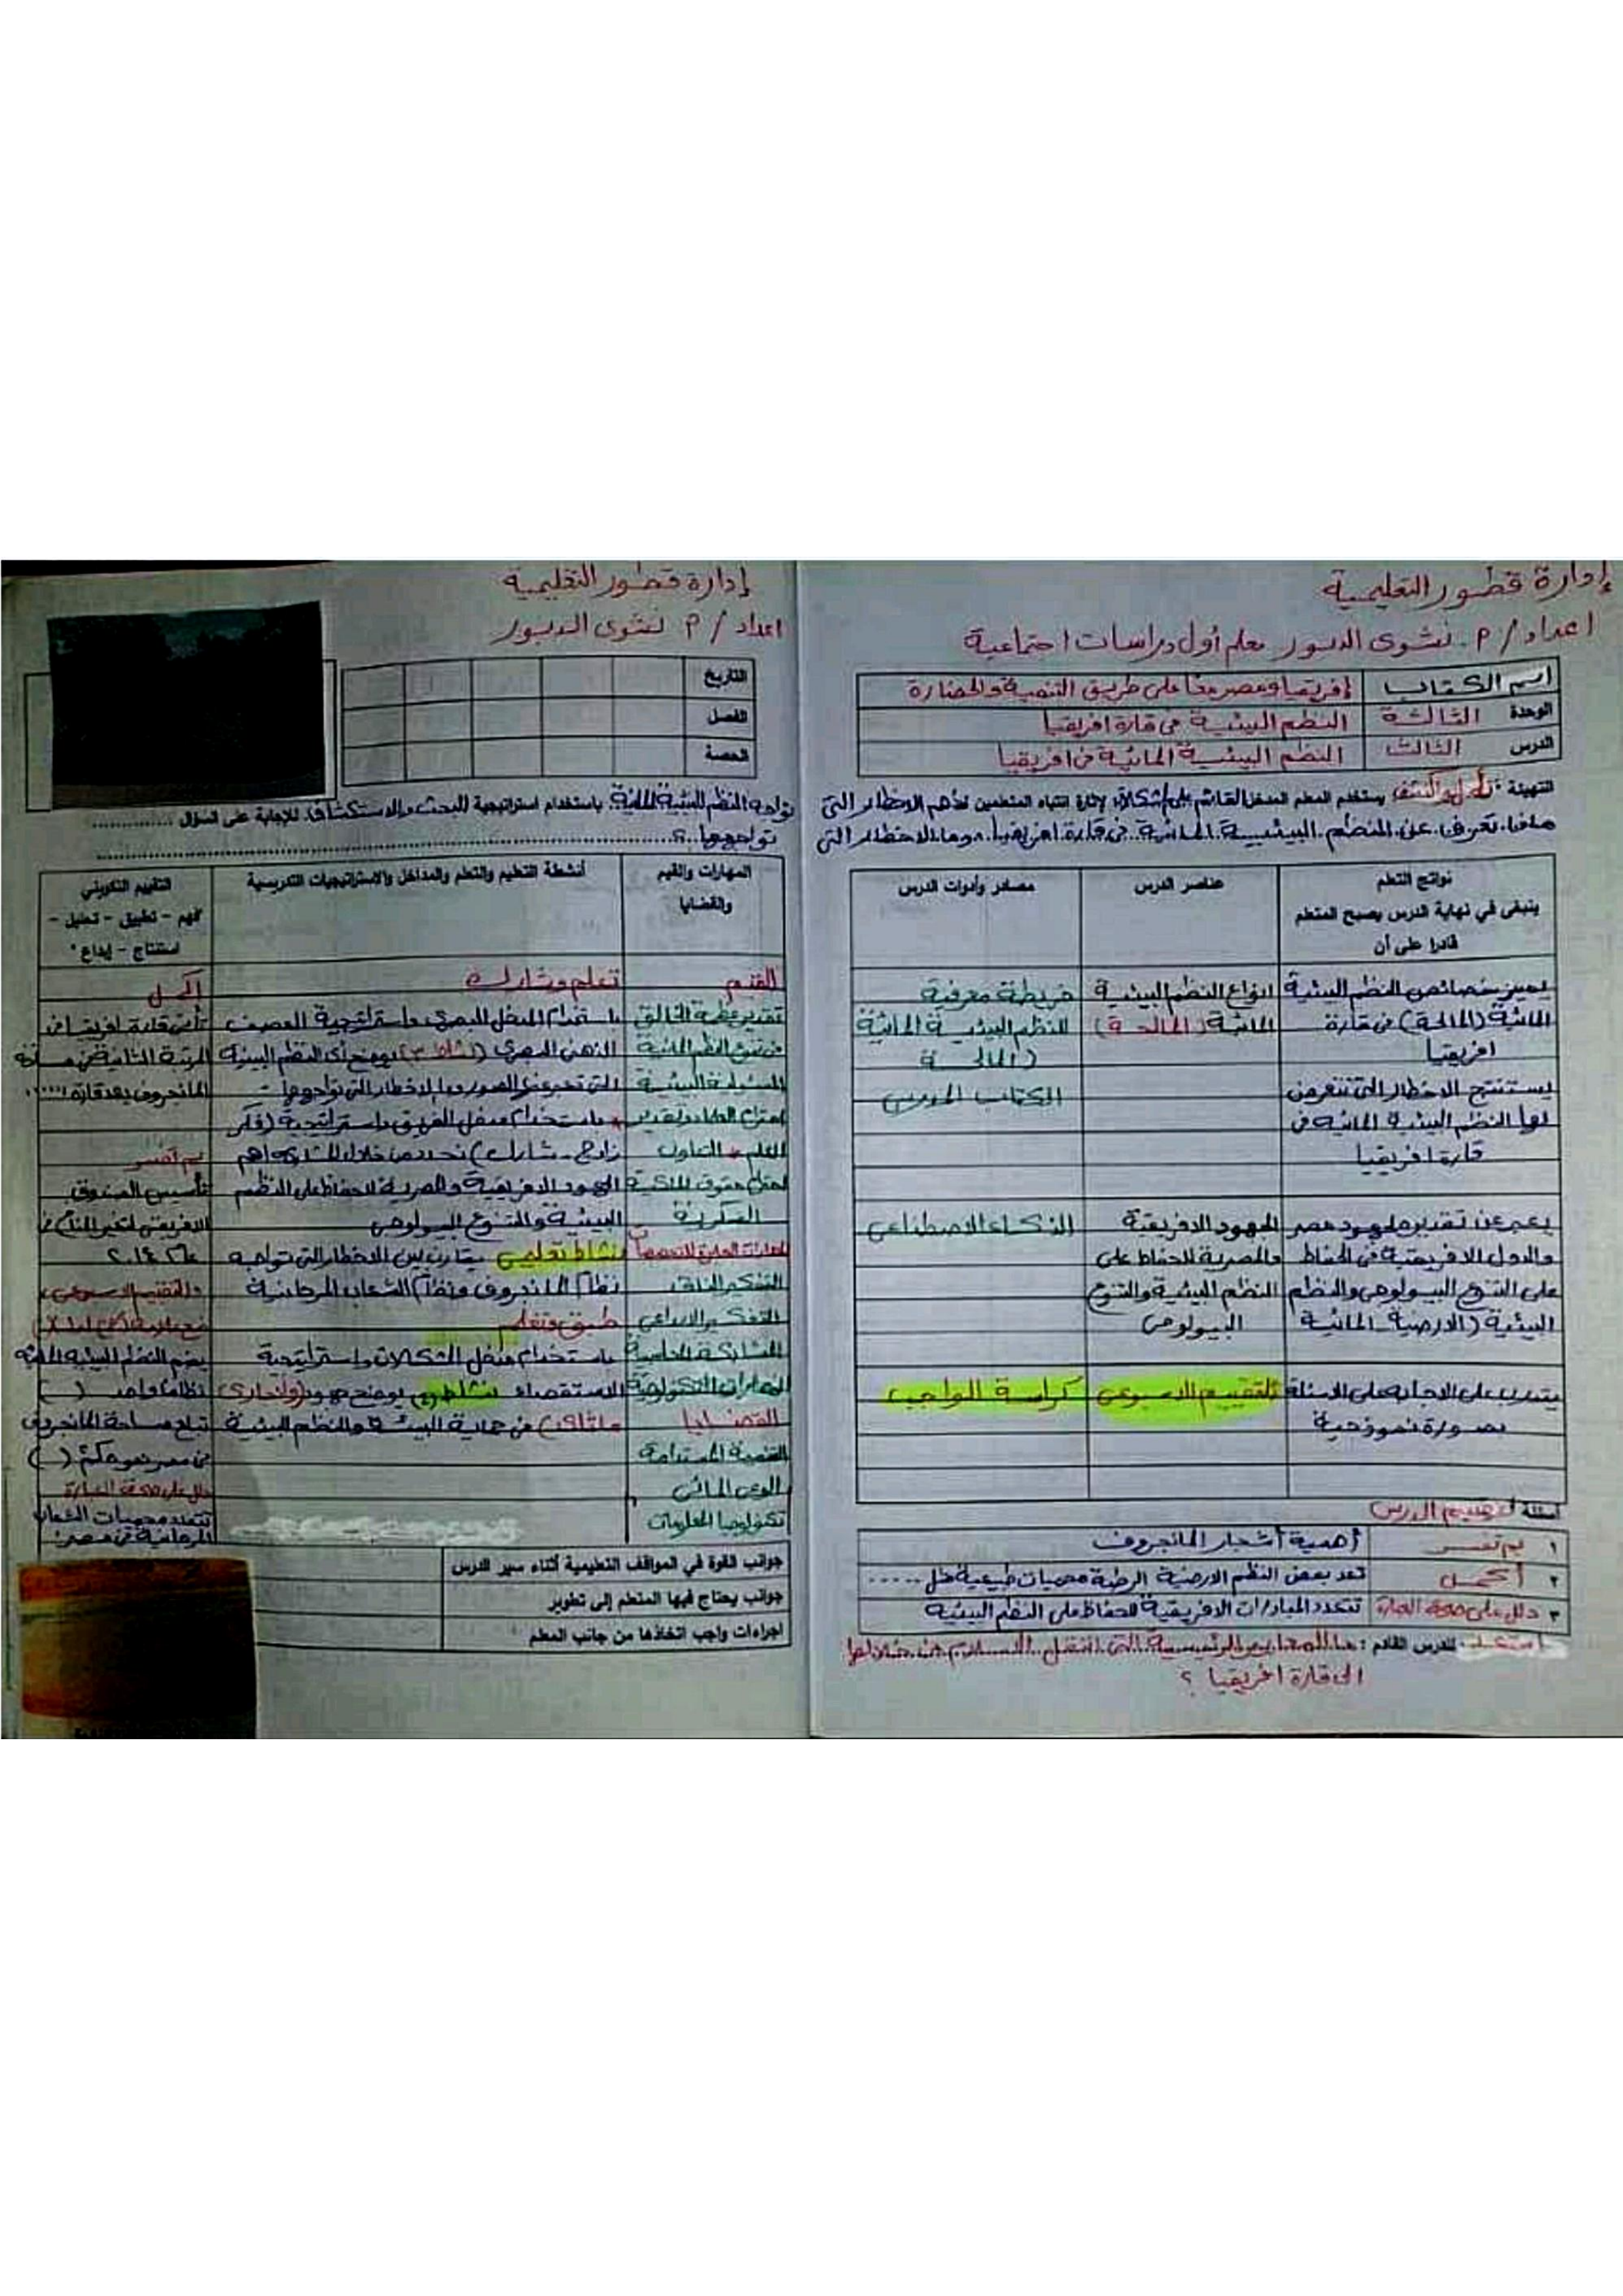 إدارة قطور التعليمية
اعداد / م. نشوى الدبور معلم أول دراسات اجتماعية
اسم الكتاب إفريقيا ومصر معا على طريق التنمية والحضارة
الوحدة الثالثة النظم البيئية فى قارة افريقيا
الدرس الثالث النظم البيئية المائية فى افريقيا
التهيئة : يستخدم المعلم المدخل القائم على المشكلات لإثارة انتباه المتعلمين لأهم الاخطار التى
ماذا تعرف عن النظم البيئية المائية فى قارة افريقيا وما الاخطار التى
نواتج التعلم
ينبغى في نهاية الدرس يصبح المتعلم
قادرا على أن
عناصر الدرس
مصادر وأدوات الدرس
يميز خصائص النظم البيئية
المائية (المالحة) فى قارة
افريقيا
انواع النظم البيئية
المائية (المالحة)
خريطة معرفية
للنظم البيئية المائية
(المالحة
الكتاب المدرسى
يستنتج الاخطار التى تتعرض
لها النظم البيئية المائية فى
قارة افريقيا
يعبر عن تقديره لجهود مصر
والدول الافريقية فى الحفاظ
على التنوع البيولوجى والنظم
البيئية (الارضية المائية
الجهود الافريقية
والمصرية للحفاظ على
النظم البيئية والتنوع
البيولوجى
الذكاء الاصطناعى
يتدرب على الاجابة على الاسئلة
بصورة نموذجية
التقييم الاسبوعى
كراسة الواجب
أسئلة لتقييم الدرس
١ بم تفسر أهمية أشجار المانجروف
٢ أكمل تعد بعض النظم الارضية الرطبة محميات طبيعية مثل .....
٣ دلل على صحة العبارة تتعدد المبادرات الافريقية للحفاظ على النظم البيئية
استعد للدرس القادم : ما المعابر الرئيسية التى انتقل الاسلام من خلالها
الى قارة افريقيا ؟
إدارة قطور التعليمية
اعداد / م نشوى الدبور
التاريخ
الفصل
الحصة
تواجه النظم البيئية المائية باستخدام استراتيجية البحث والاستكشاف للإجابة على السؤال ..............
تواجهها ؟
المهارات والقيم
والقضايا
أنشطة التعليم والتعلم والمداخل والاستراتيجيات التدريسية
التقييم التكوينى
فهم - تطبيق - تحليل -
استنتاج - إبداع
القيم
تقدير عظمة الخالق
فى تنوع النظم المائية
المسئولية البيئية
احترام العلماء وتقدير
العلم * التعاون
احترام حقوق الملكية
الفكرية
التفكير الناقد
التفكير الابداعى
المهارات التكنولوجية
القضايا
التنمية المستدامة
الوعى المائى
تكنولوجيا المعلومات
تعلم وشارك
باستخدام المدخل البصرى واستراتيجية العصف
الذهنى البصرى (نشاط ٣) يوضح أى النظم البيئية
التى تعبر عنها الصور وما الاخطار التى تواجهها
* باستخدام مدخل الفريق واستراتيجية (فكر
زاوج - شارك) نحدد من خلال المشاركة اهم
الجهود الافريقية والمصرية للحفاظ على النظم
البيئية والتنوع البيولوجى
نشاط تعليمى يقارن بين الاخطار التى تواجه
نظام المانجروف ونظام الشعاب المرجانية
طبق وتعلم
باستخدام مدخل المشكلات واستراتيجية
الاستقصاء نشاط يوضح جهود (وانجارى
ماثاى) فى حماية البيئة والنظم البيئية
أكمل
تأتى قارة افريقيا فى
المرتبة الثانية من مساحة
المانجروف بعد قارة .....
بم تفسر
تأسيس الصندوق
الافريقى لتغير المناخ فى
عام ٢٠١٤
والتقييم الاسبوعى
ضع علامة
يضم النظم البيئية المائية
نظاما واحد ( )
تبلغ مساحة المانجروف
فى مصر نحو كم٢ ( )
دلل على صحة العبارة
تتعدد محميات الشعاب
المرجانية فى مصر
جوانب القوة في المواقف التعليمية أثناء سير الدرس
جوانب يحتاج فيها المتعلم إلى تطوير
اجراءات واجب اتخاذها من جانب المعلم